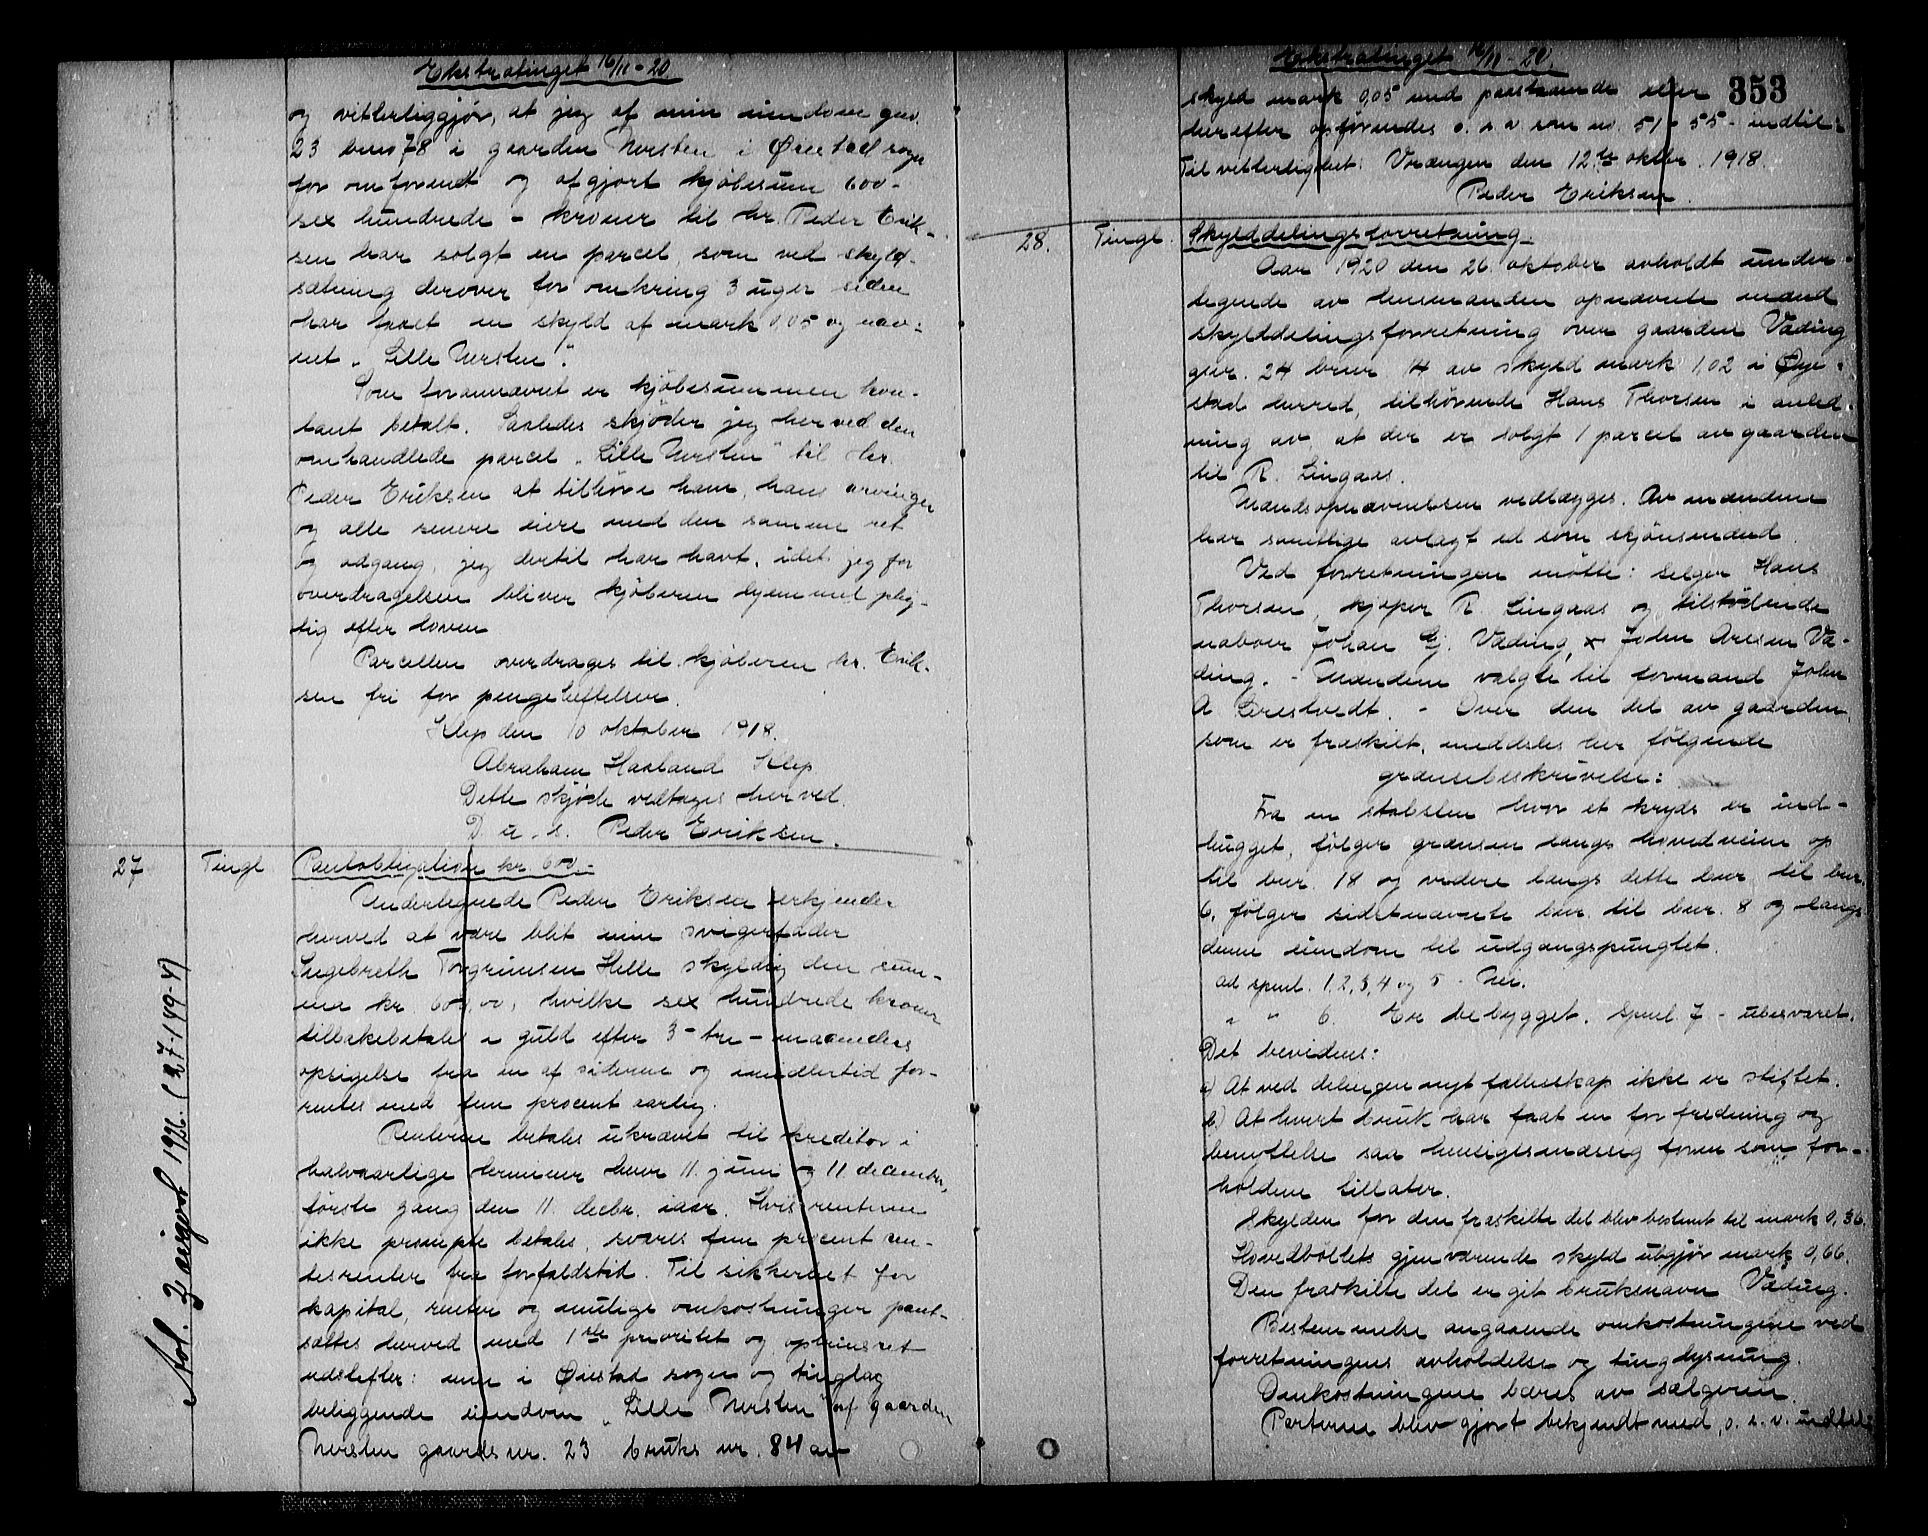 Ekstratinget 16/11-20
og vitterliggjør, at jeg af min eiendom gnr.
23 brno 78 i gaarden Nersten i Øiestad sogn
for omforenet og afgjort kjøbesum 600-
sex hundrede - kroner til hr. Peder Erik-
sen har solgt en parcel, som ved skyld-
sætning derover for omkring 3 uger siden
har faaet en skyld af mark 0.05 og nav-
net „Lille Nersten".
Som forannævnt er kjøbesummen kon-
tant betalt. Saaledes skjøder jeg herved den
omhandlede parcel „Lille Nersten" til Hr.
Peder Eriksen at tilhøre ham, hans arvinger
og alle senere eiere med den samme ret
og adgang, jeg dertil har havt, idet jeg for
overdragelsen bliver kjøberen hjemmel plig-
tig efter loven
Parcellen overdrages til kjøberen hr. Erik-
sen fri for pengeheftelser.
Klep den 10 oktober 1918.
Abraham Haaland Klep
Dette skjøde vedtages herved.
D. u. s. Peder Eriksen.
27 Tingl Pantobligation kr 600-
Undertegnede Peder Eriksen erkjender
herved at være blit min svigerfader
Ingebreth Torgrimsen Helle skyldig den sum-
ma kr. 600,00, hvilke sex hundrede kroner
tilbakebetales i guld efter 3 - tre - maaneders
opsigelse fra en af siderne og imidlertid for-
rentes med fem procent aarlig.
Renterne betales ukrævet til kreditor i
halvaarlige terminer hver 11. juni og 11 december,
første gang den 11. decbr. iaar. Hvis renterne
ikke prompte betales, svares fem procent ren-
tesrenter fra forfaldstid. Til sikkerhet for
kapital, renter og mulige omkostninger pant-
sættes herved med 1ste prioritet og opr
udslefter: min i Øiestad sogn og tinglag
beliggende eiendom „Lille Nersten" af gaarden
Nersten gaards nr. 23 bruks nr. 84 av
Avl. 1926. (27-149-4)
Ekstratinget 16/11-20.
353
skyld mark 0,05 med paastaaende eller
herefter opførendes o. s. v. som no. 51-55- indtil:
Til vitterlighet: Vrængen den 12te oktbr. 1918.
Peder Eriksen.
28. Tingl. Skylddelingsforretning.
Aar 1920 den 26. oktober avholdt under-
tegnede av lensmanden opnævnte mænd
skylddelingsforretning over gaarden Væding
gnr. 24 bnr. 14 av skyld mark 1,02 i Øye-
stad herred, tilhørende Hans Thorsen i anled-
ning av at der er solgt 1 parcel av gaarden
til R. Lingaas.
Mændsopnævnelsen vedlægges. Av mændene
har samtlige avlagt ed som skjønsmænd.
Ved forretningen møtte: selger Hans
Thorsen, kjøper R. Lingaas og tilstødende
naboer Johan Gj. Væding, x John Aresen Væ-
ding. - Mændene valgte til formand John
A. Grestvedt. - Over den del av gaarden
som er fraskilt, meddeles her følgende
grænsebeskrivelse:
Fra en stabsten hvor et kryds er ind-
hugget, følger grænsen langs hovedveien op
til bnr. 18 og videre langs dette bnr. til bnr.
6, følger sidstnævnte bnr. til bnr. 8 og langs
denne eiendom til udgangspunktet.
ad spml. 1, 2, 3, 4 og 5 - Nei.
" " 6. Er bebygget. Spml. 7 - ubesvaret.
Det bevidnes:
a) At ved delingen nyt fælleskap ikke er stiftet.
b.) At hvert bruk har faat en for fredning og
benyttelse saa hensigtsmæssig form som for-
holdene tillater.
Skylden for den fraskilte del blev bestemt til mark 0,36.
Hovedbølets gjenværende skyld utgjør mark 0,66.
Den fraskilte del er git bruksnavn Væding.
Bestemmelse angaaende omkostningene ved
forretningens avholdelse og tinglysning.
Omkostningene bæres av sælgeren.
Parterne blev gjort bekjendt med, o. s. v. indtil: